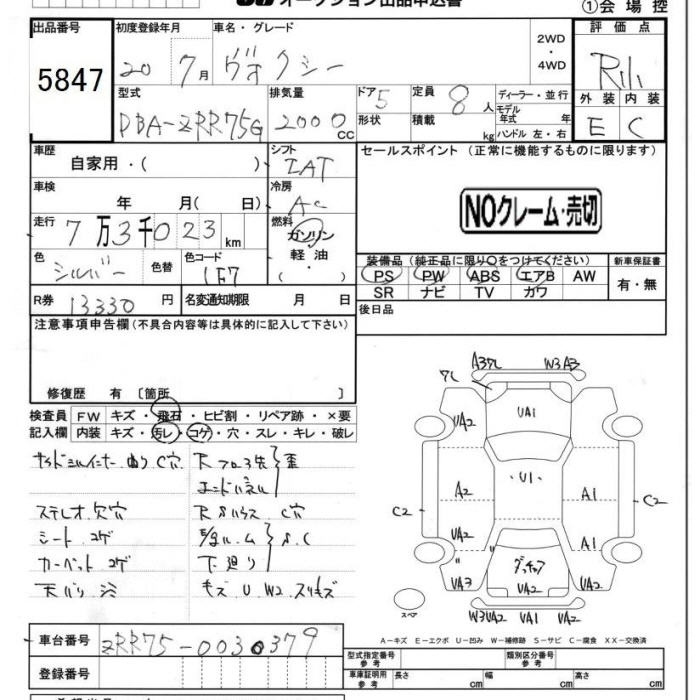 オークション出品申込書
①会場控
出品番号 初度登録年月 車名・グレード 評価点
5847 20 7月 ヴォクシー 2WD・4WD
型式 排気量 ドア 定員 ディーラー・並行 外装 内装
DBA-ZRR75G 2000cc 5 8人 モデル年式 年 E C
形状 積載 kg ハンドル 左・右
車歴 シフト セールスポイント (正常に機能するものに限ります)
自家用・( ) IAT
車検 冷房
年 月( 日) AC
NOクレーム・売切
走行 燃料
7万3千023km ガソリン
軽油
・( )
色 色替 色コード 装備品 (純正品に限り○をつけてください) 新車保証書
シルバー 1F7 PS PW ABS エアB AW 有・無
SR ナビ TV カワ
R券 13330円 名変通知期限 月 日 後日品
注意事項申告欄 (不具合内容等は具体的に記入して下さい)
修復歴 有 〔箇所 〕
検査員 FW キズ・飛石・ヒビ割・リペア跡・×要
記入欄 内装 キズ・汚レ・コゲ・穴・スレ・キレ・破レ
ステレオ.欠穴
シート コゲ
カーペット コゲ
下廻り S.C
キズ U W2
A3 W3 A3
UA2 UA1 UA2
A2 U1 A1
C2 C2
UA2 A1
UA3 UA2 UA2
W3 UA2 UA1 UA2
スペア
A-キズ E-エクボ U-凹み W-補修跡 S-サビ C-腐食 XX-交換済
車台番号 ZRR75-0030379
型式指定番号 参考 類別区分番号 参考
登録番号 車庫証明用 参考 長さ cm 幅 cm 高さ cm